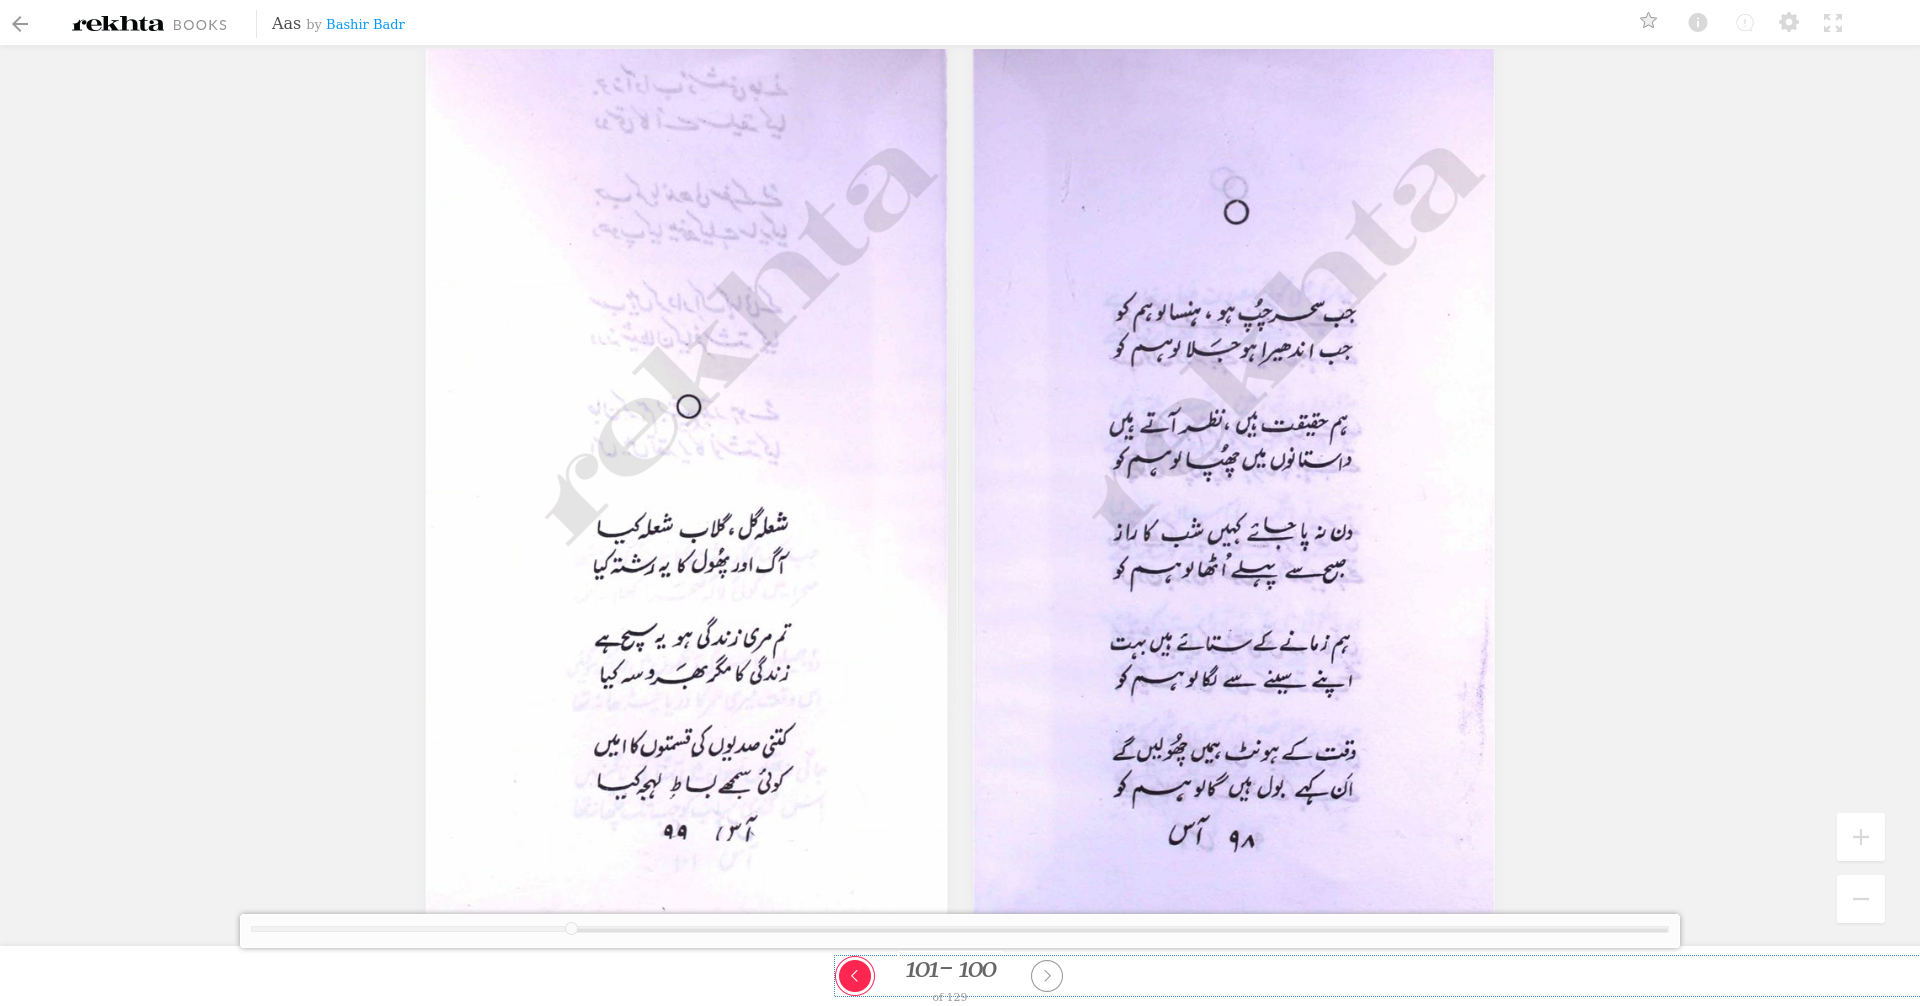 rekhta BOOKS Aas by Bashir Badr
جب سحر چُپ ہو، ہنسا لو ہم کو
جب اندھیرا ہو جَلا لو ہم کو
ہم حقیقت ہیں، نظر آتے ہیں
داستانوں میں چھُپا لو ہم کو
دن نہ پا جائے کہیں شب کا راز
صبح سے پہلے اُٹھا لو ہم کو
ہم زمانے کے ستائے ہیں بہت
اپنے سینے سے لگا لو ہم کو
وقت کے ہونٹ ہمیں چھُولیں گے
اَن کہے بول ہیں گا لو ہم کو
۹۸ آس
شعلہ گل، گلاب شعلہ کیا
آگ اور پھُول کا یہ رشتہ کیا
تم مری زندگی ہو یہ سچ ہے
زندگی کا مگر بھَروسہ کیا
کتنی صدیوں کی قسمتوں کا امیں
کوئی سمجھے بساطِ لہجہ کیا
آس ۹۹
rekhta
rekhta
101- 100
of 129